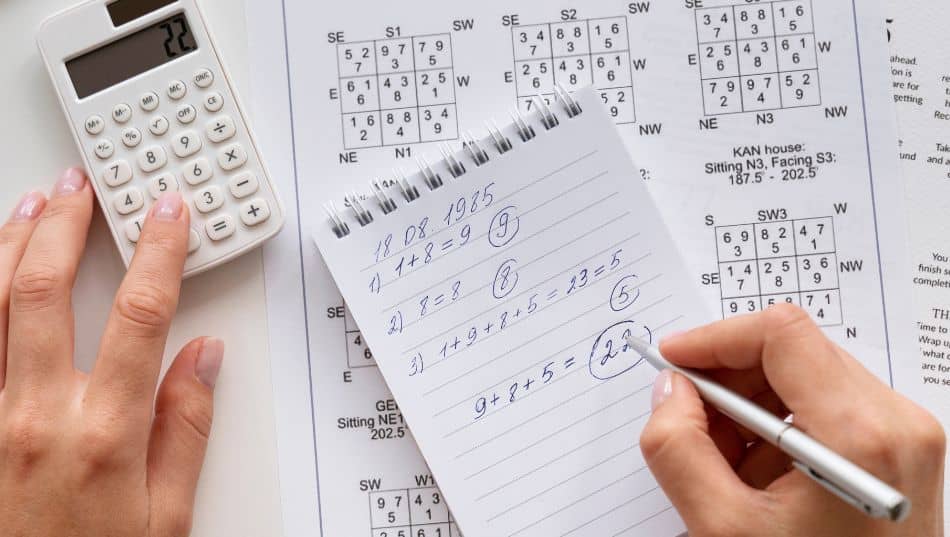 22
M+ M- MR MC ON/C
+/- % √ OFF CE
7 8 9 ÷
4 5 6 ×
1 3 −
= +
SE S1 SW
5 2 9 7 7 9
7 3 5
E 6 1 4 3 2 5 W
6 8 1
1 6 8 8 3 4
2 4 9
NE N1
SE S2 SW
3 4 8 8 1 6
7 3 5
E 2 5 4 3 6 1 W
6 8 6
5 2
NW
SE SW
3 4 8 8 1 6
7 3 5
E 2 5 4 3 6 1 W
6 8 6
7 9 9 7 5 2
2 4 9
NE N3 NW
KAN house:
Sitting N3, Facing S3:
187.5° - 202.5°
S SW3 W
6 9 8 2 4 7
3 5 1
SE 1 4 2 5 3 6 NW
7 8 9
9 3 5 8 7 1
4
N
18.08.1985
1) 1+8=9 9
2) 8=8 8
3) 1+9+8+5=23=5
5
9+8+5= 22
SE
4
6
E
GE
Sitting NE1
202.5°
SW W1
9 7 4 3
5 1
ahead.
on is
are for
getting
Rec
Tak
und and a
You
finish s
complet
TH
Time to
Wrap u
what c
are for
you se